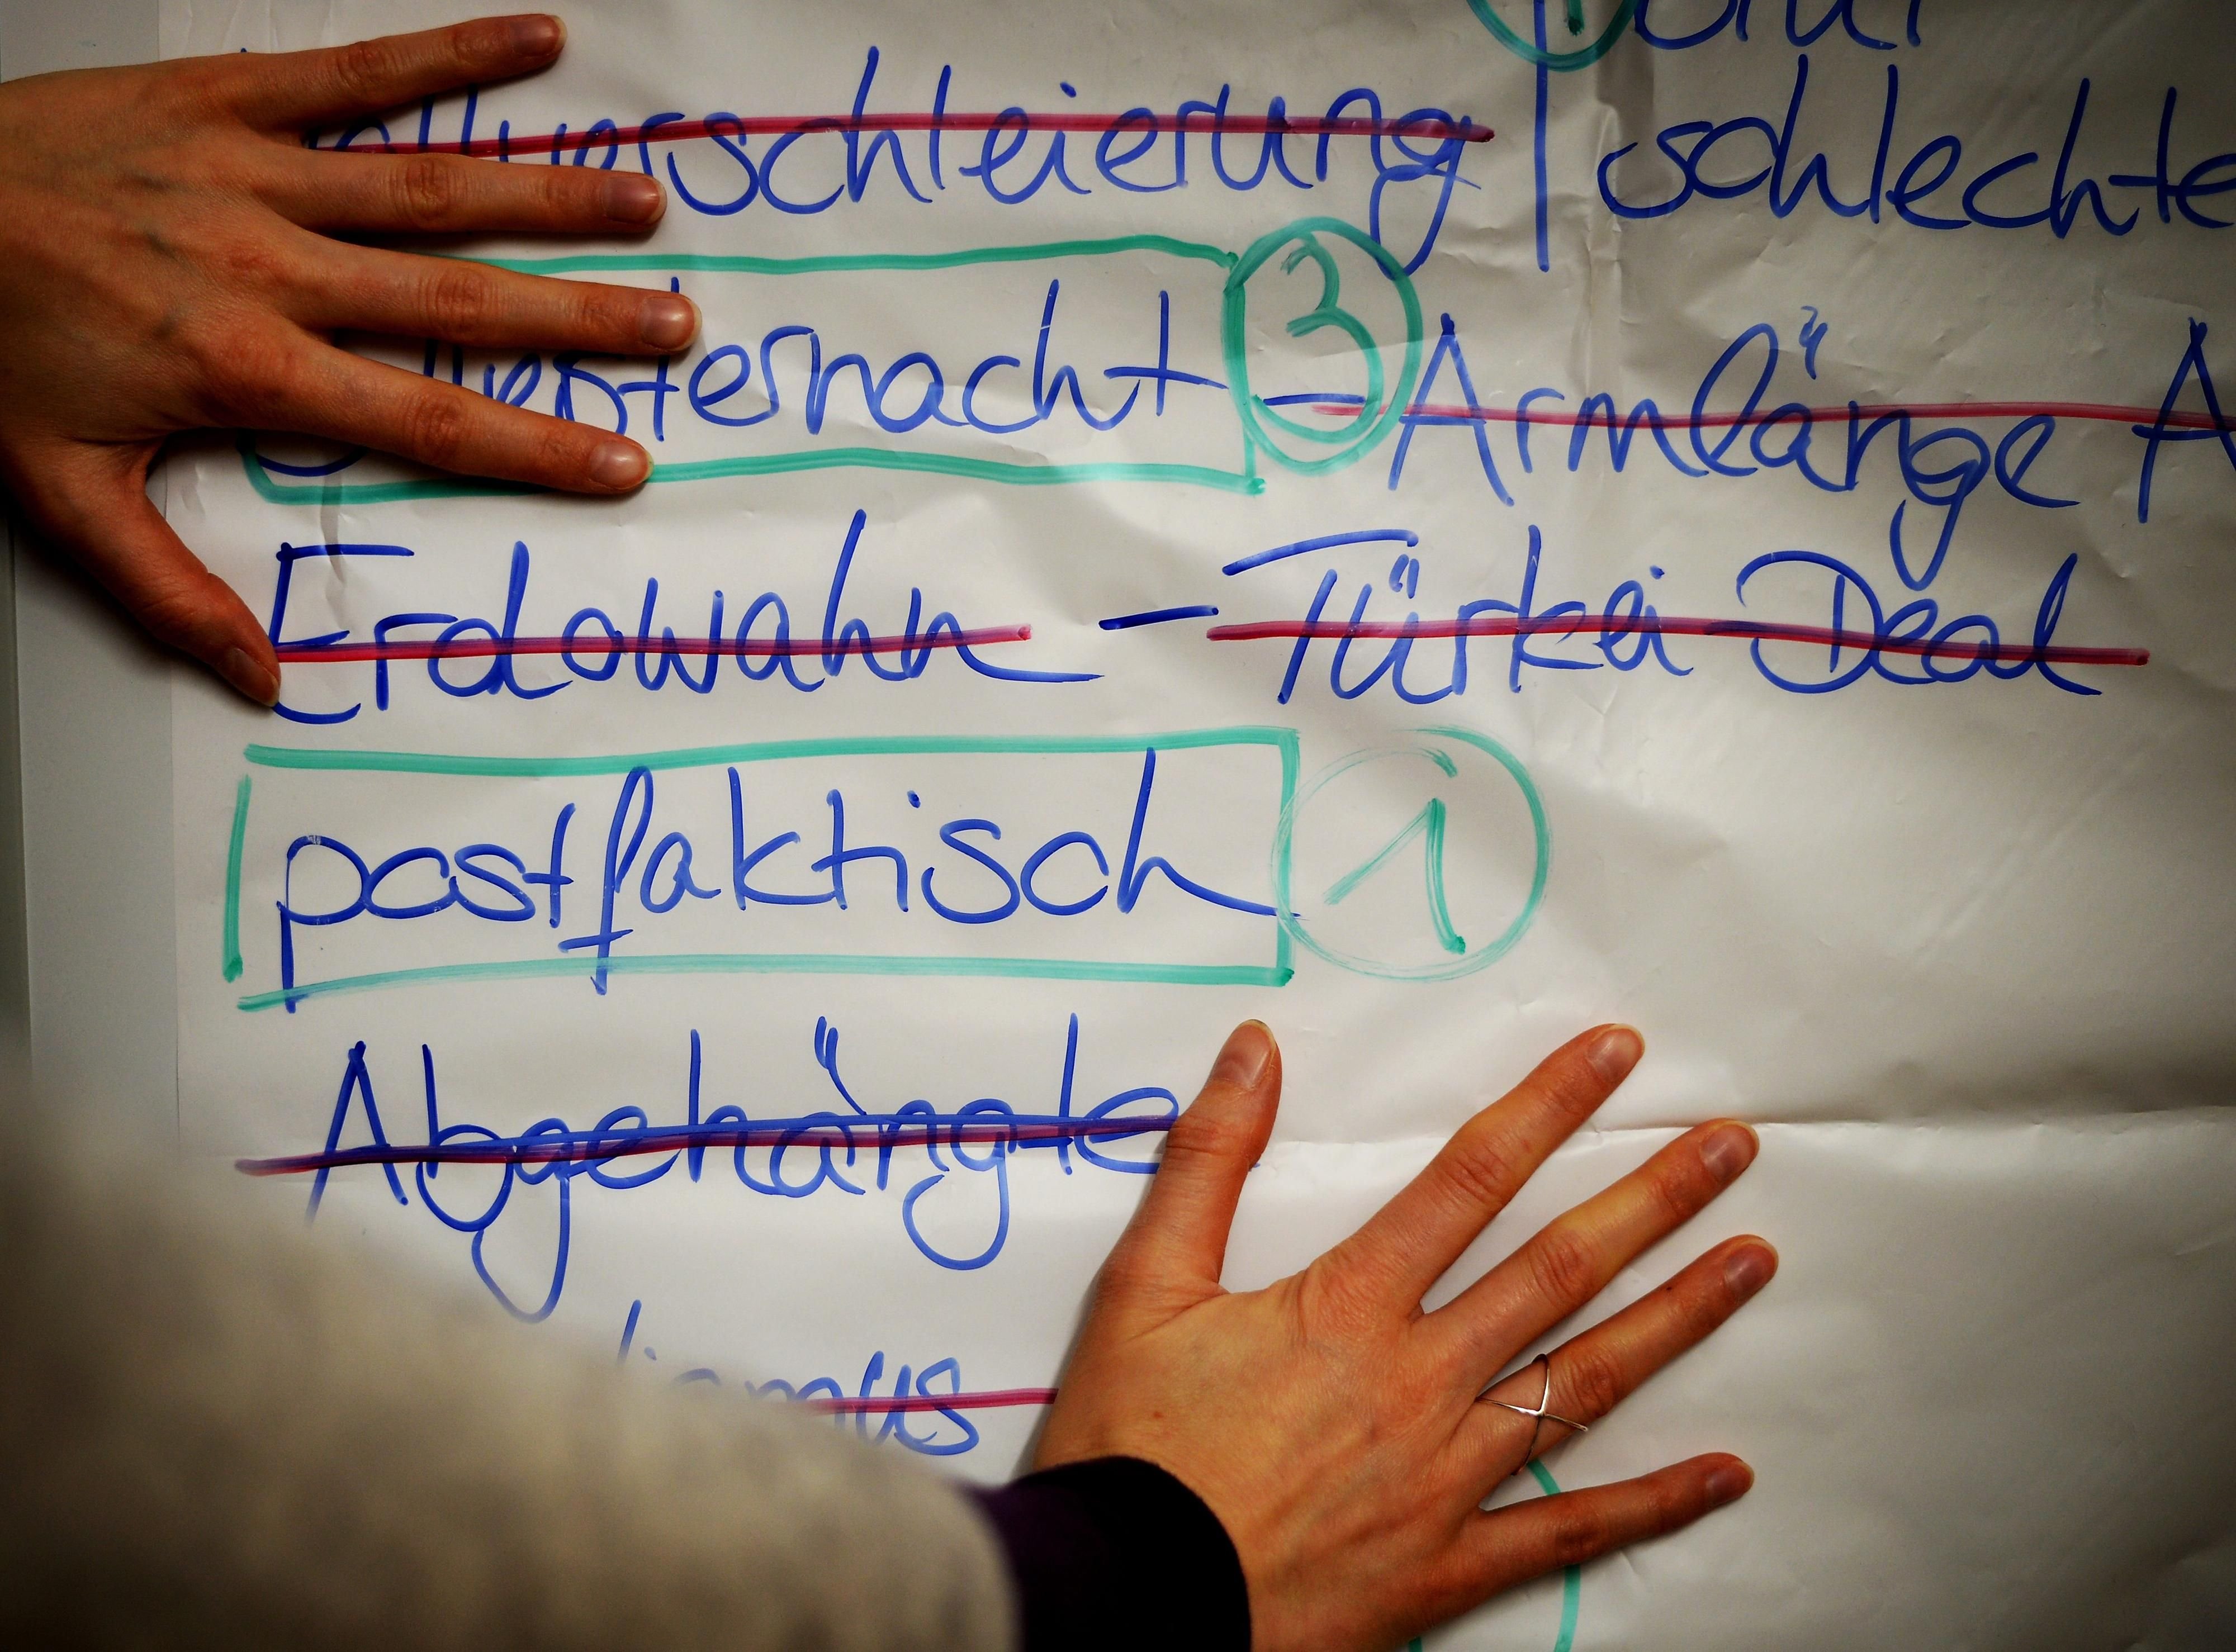 Vollverschleierung
schlechte
Silvesternacht 3 - Armlänge A
Erdowahn - Türkei Deal
postfaktisch 1
Abgehängte